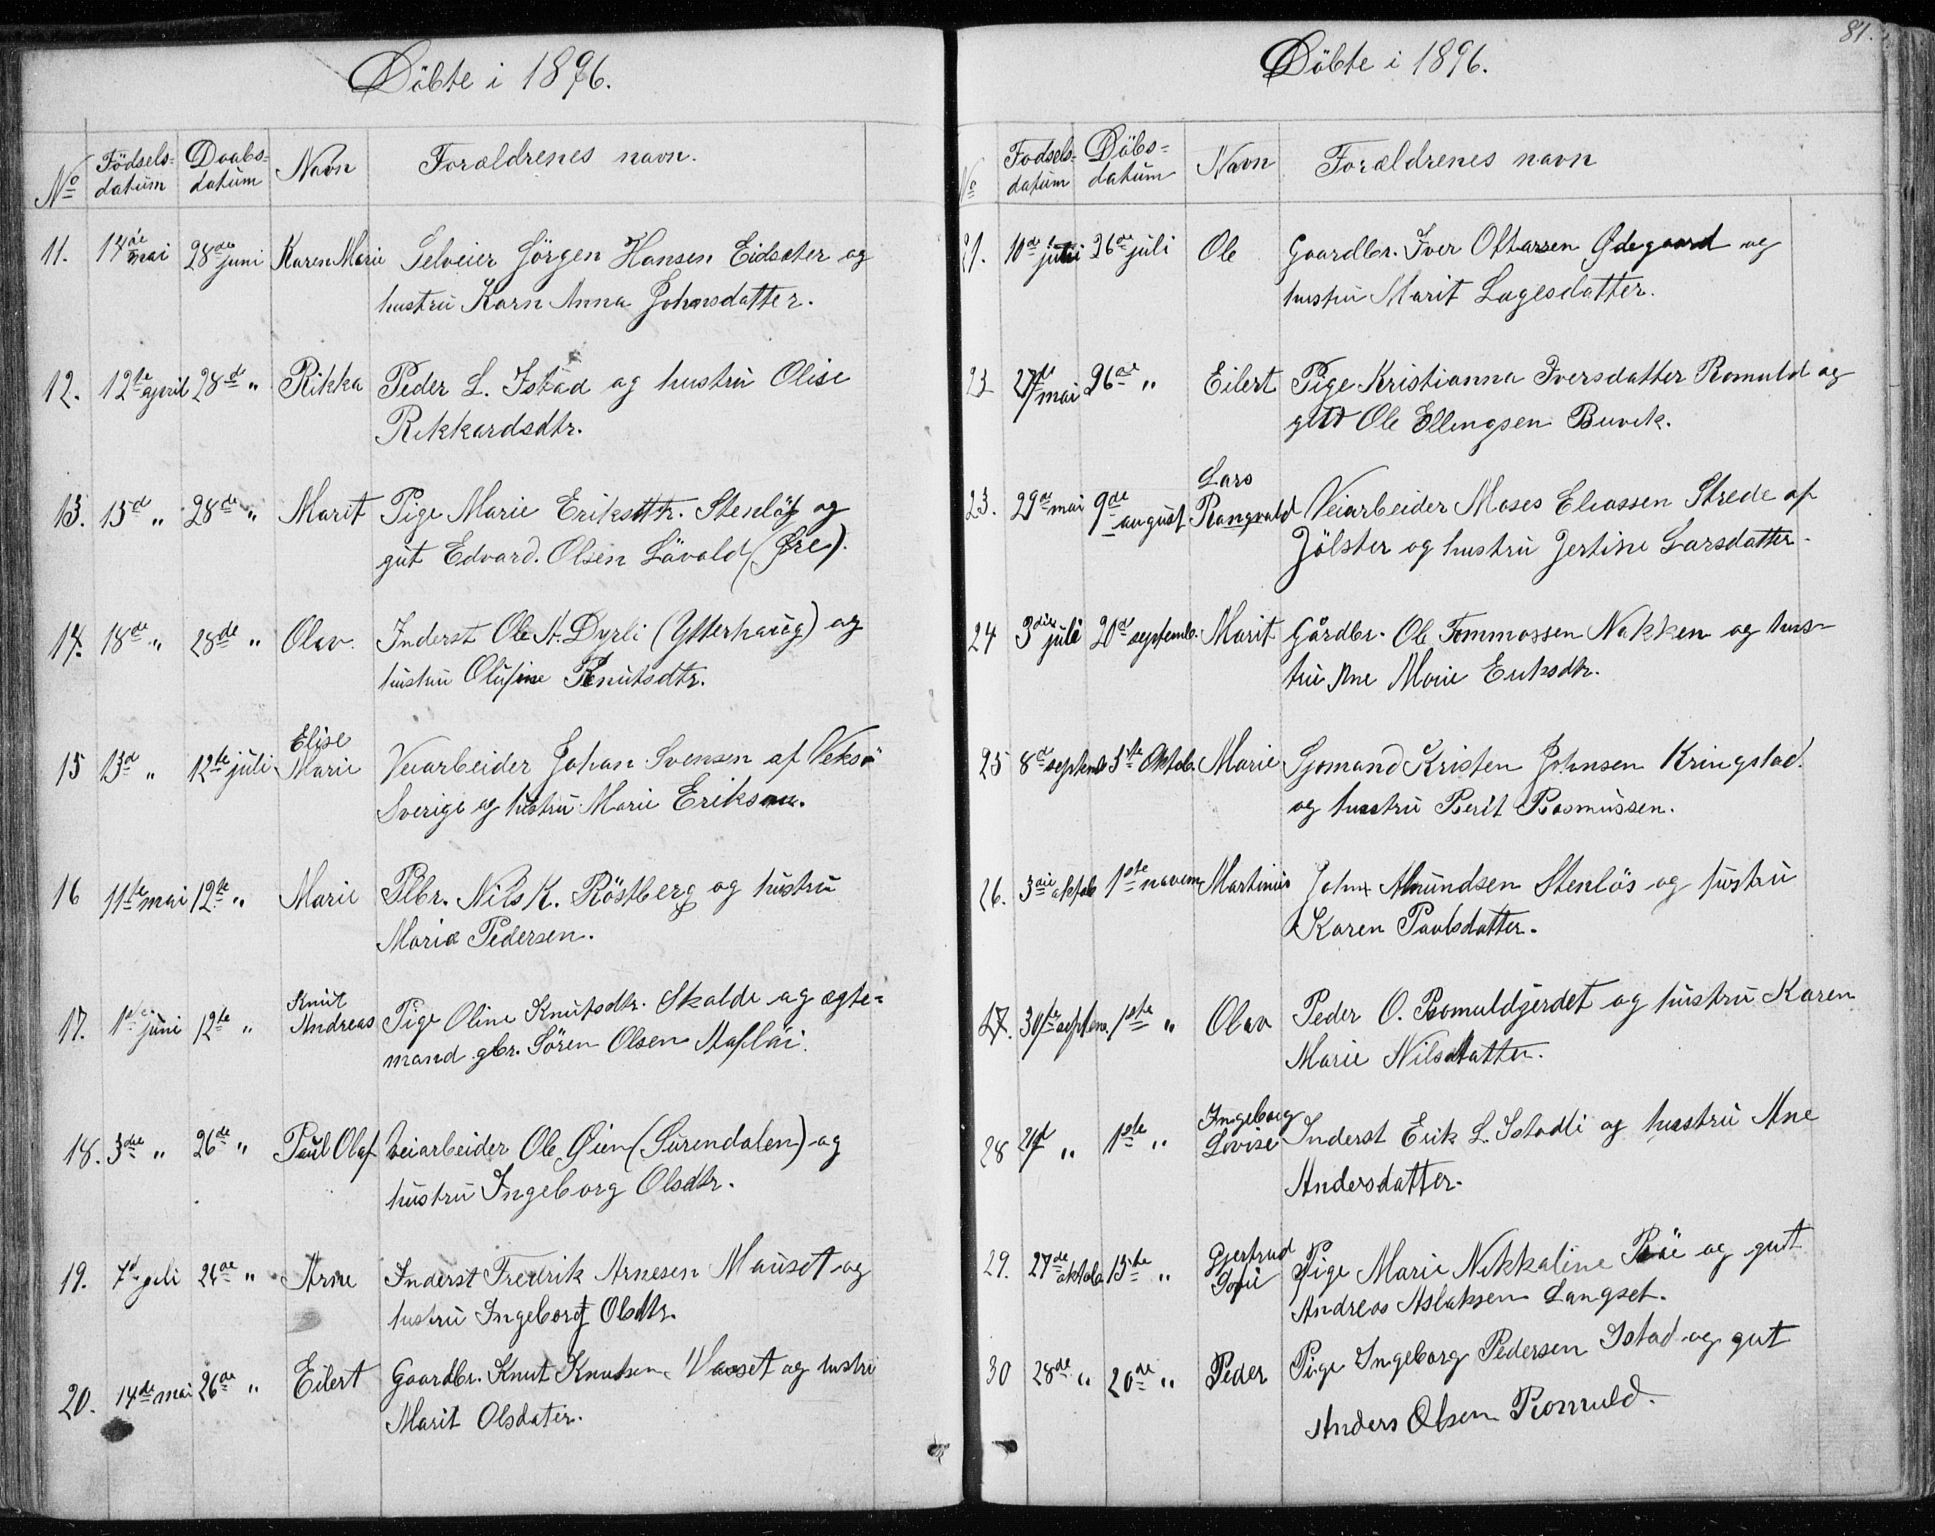 Döbte i 1896.
No Födsels-datum Daabs-datum Navn Forældrenes navn.
11. 14de mai 28de juni Karen Marie Selveier Jörgen Hansen Eidsæter og
hustru Karn Anna Johnsdatter.
12. 12te april 28de " Rikka Peder L. Istad og hustru Olise
Rikkardsdtr.
13. 15de " 28de " Marit Pige Marie Eriksdtr. Stenlös og
gut Edvard. Olsen Lävold (Øre).
14. 18de " 28de " Olav. Inderst Ole A. Dyrli (Ytterhaug) og
hustru Olufine Knutsdtr.
Elise
15 13de " 12te juli Marie Veiarbeider Johan Svensen af Veksö
Sverige og hustru Marie Erikson.
16 11te mai 12te " Marie Plbr. Nils K. Röstberg og hustru
Maria Pedersen.
Knut
17. 1ste juni 12te " Andreas Pige Oline Knutsdtr. Skalde og ægte=
mand gbr. Sören Olsen
18. 3die " 26de " Paul Olaf Veiarbeider Ole Øien (Surendalen) og
hustru Ingeborg Olsdtr.
19. 7de juli 26de " Arne Inderst Fredrik Arnesen Mauset og
hustru Ingeborg Olsdtr.
20. 14de mai 26de " Eilert Gaardbr. Knut Knutsen Vaaset og hustru
Marit Olsdater.
81.
Döbte i 1896.
No Fodsels-datum Döbs=datum Navn Forældrenes navn
21. 10de juli 26de juli Ole Gaardbr. Iver Oltarsen Ødegaard og
hustru Marit Lagesdatter.
22 27de mai 26de " Eilert Pige Kristianna Iversdatter Romuld og
gut Ole Ellingsen Buvik.
Lars
23. 29de mai 9de august Rangvald Veiarbeider Moses Eliassen Strede af
Jölster og hustru Jertine Larsdatter.
24 3die juli 20de septemb. Marit Gårdbr. Ole Tommassen Nakken og hus-
tru Ane Marie Eriksdtr.
25 8de septemb 3die Oktob. Marie Sjomand Kristen Johnsen Kringstad.
og hustru Berit Rasmussen.
26. 3die oktob 1ste novem Martinus John Amundsen Stenlös og hustru
Karen Paulsdatter.
27. 30te septem. 1ste " Olav Peder O. Romuldgjerdet og hustru Karen
Marie Nilsdatter.
Ingeborg
28 21de " 1ste " Lovise Inderst Erik L. Istadli og hustru Ane
Andersdatter.
Gjertrud
29. 27de oktob. 15te " Sofie Pige Marie Nikkaline Röe og gut
Andreas Aslaksen Langset.
30 28de " 20de " Peder Pige Ingeborg Pedersen Istad og gut
Anders Olsen Romuld.